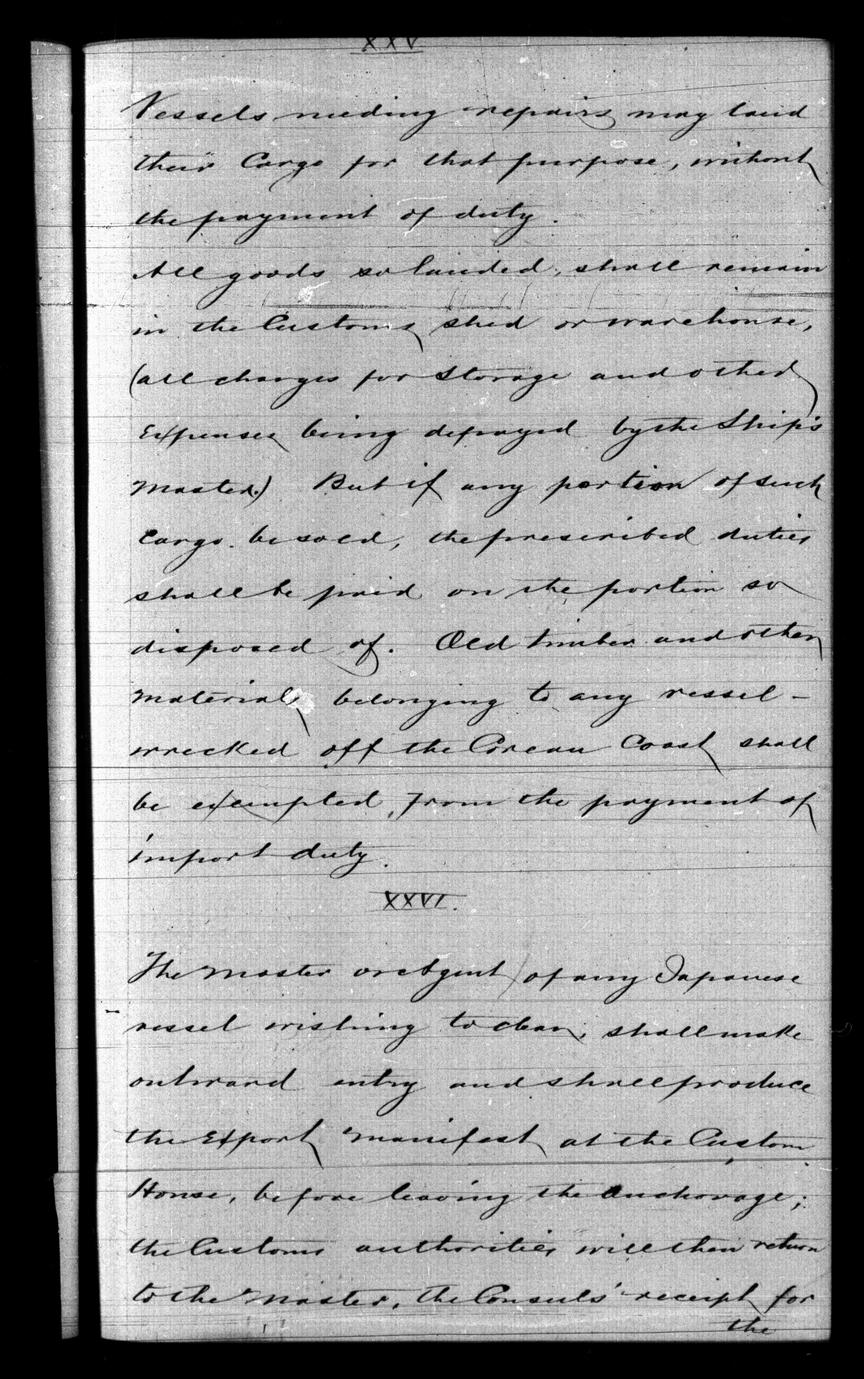 XXV
Vessels needing repairs may land
their Cargo for that purpose, without
the payment of duty.
All goods so landed, shall remain
in the Customs shed or warehouse,
(all charges for Storage and other
Expenses being defrayed by the Ship's
Master.) But if any portion of such
Cargo be sold, the prescribed duties
shall be paid on the portion so
disposed of. Old timber and other
material belonging to any vessel -
wrecked off the Corean Coast shall
be exempted from the payment of
import duty.
XXVI.
The Master or Agent of any Japanese
vessel wishing to clear, shall make
outward entry and shall produce
the Export Manifest at the Custom
House, before leaving the anchorage;
the Customs authorities will then return
to the Master, the Consuls' receipt for
the